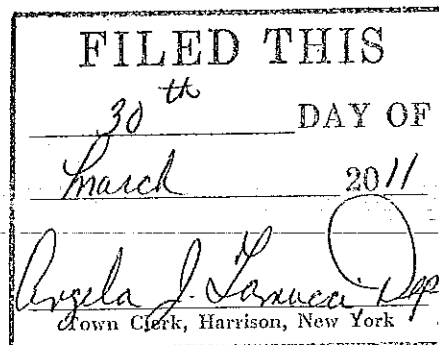 FILED THIS
30th DAY OF
March 2011
Angela J. Dep
Town Clerk, Harrison, New York